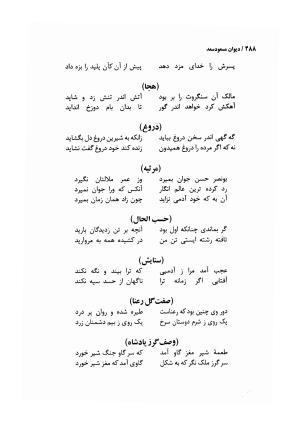 ۲۸۸ / دیوان مسعودسعد
پسرش را خدای مزد دهد پیش از آن کآن پلید را بزه داد
(هجا)
مالک آن سنگروت را بر بود آتش اندر تنش زد و شاید
آهکش کرد خواهد اندر گور تا بدان بام دوزخ انداید
(دروغ)
گه گهی اندر سخن دروغ بیاید زانکه به شیرین دروغ دل بگشاید
نه که اگر مرده را دروغ همیدون زنده کند خود دروغ گفت نشاید
(مرثیه)
بونصر حسن جوان بمیرد وز عمر ملالتان نگیرد
رد کرده ترین عالم انگار آنکس که ورا جوان نمیرد
آن به که خود آدمی نزاید چون زاد همان زمان بمیرد
(حسب الحال)
گر بماندی چنانکه اول بود آنچه بر تن زدیدگان بارید
تافته رشته ایستی تن من در کشیده همه به مروارید
(ستایش)
عجب آمد مرا ز آدمیی که ترا بیند و نگه نکند
آفتابی اگر زمانه ترا ناگهان از حسد سیه نکند
(صفت گل رعنا)
دور وی چنین بود که رعناست طیره شده و روان پر درد
یک روی ز شرم دوستان سرخ یک روی ز بیم دشمنان زرد
(وصف گرز پادشاه)
طعمهٔ شیر مغز گاو آمد که سر گاو جنگ شیر خورد
سر گرز ملک نگر که به شکل گاوی آمد که مغز شیر خورد